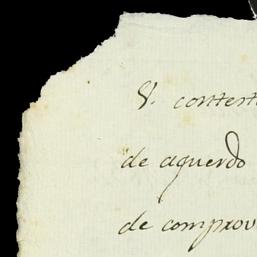 V. contest
de aquerdo
de comprov